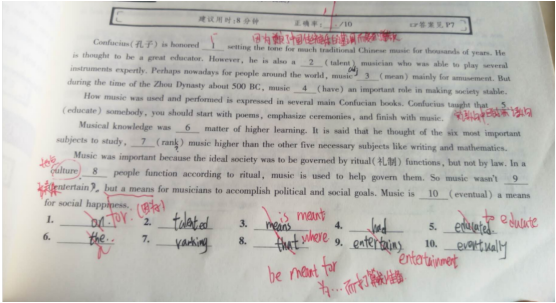 建议用时:8分钟 正确率: /10 答案见P7
Confucius(孔子) is honored 1 setting the tone for much traditional Chinese music for thousands of years. He
is thought to be a great educator. However, he is also a 2 (talent) musician who was able to play several
instruments expertly. Perhaps nowadays for people around the world, music 3 (mean) mainly for amusement. But
during the time of the Zhou Dynasty about 500 BC, music 4 (have) an important role in making society stable.
How music was used and performed is expressed in several main Confucian books. Confucius taught that 5
(educate) somebody, you should start with poems, emphasize ceremonies, and finish with music.
Musical knowledge was 6 matter of higher learning. It is said that he thought of the six most important
subjects to study, 7 (rank) music higher than the other five necessary subjects like writing and mathematics.
Music was important because the ideal society was to be governed by ritual(礼制) functions, but not by law. In a
culture 8 people function according to ritual, music is used to help govern them. So music wasn't 9
(entertain), but a means for musicians to accomplish political and social goals. Music is 10 (eventual) a means
for social happiness.
for.
1. on 2. talented 3. means is meant 4. had 5. educated to educate
6. the a 7. ranking 8. that where 9. entertains 10. eventually
entertainment
be meant for